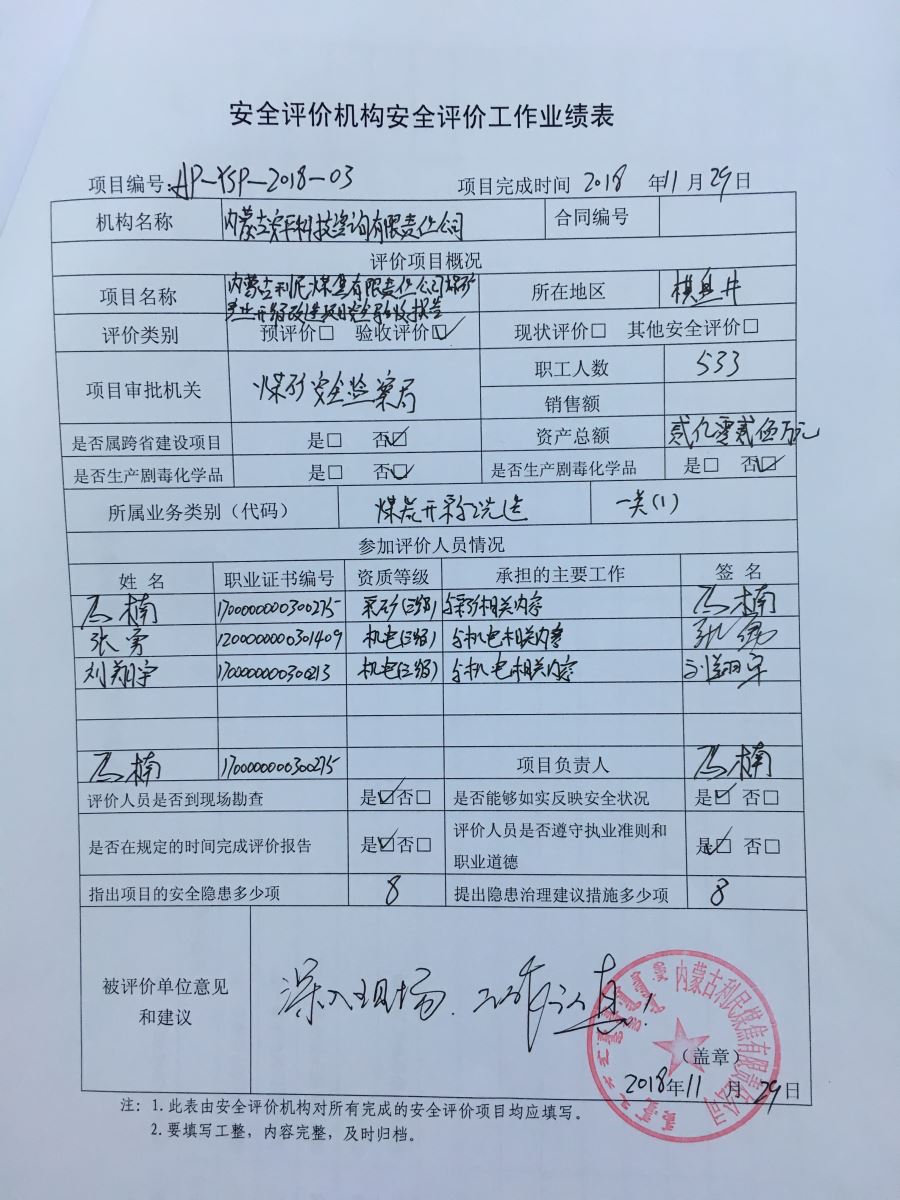 安全评价机构安全评价工作业绩表
项目编号:AP-YSP-2018-03 项目完成时间 2018 年 11 月 29 日
机构名称 内蒙古安平科技咨询有限责任公司 合同编号
评价项目概况
项目名称 内蒙古利民煤焦有限责任公司煤矿 所在地区 棋盘井
评价类别 预评价□ 验收评价☑ 现状评价□ 其他安全评价□
项目审批机关 煤矿安全监察局 职工人数 533
销售额
是否属跨省建设项目 是□ 否☑ 资产总额 贰亿零贰伍万元
是否生产剧毒化学品 是□ 否☑ 是否生产剧毒化学品 是□ 否☑
所属业务类别（代码） 煤炭开采洗选 一类(1)
参加评价人员情况
姓 名 职业证书编号 资质等级 承担的主要工作 签 名
冯楠 1700000000300275 采矿(三级) 与采矿相关内容 冯楠
张勇 1200000000301409 机电(三级) 与机电相关内容 张勇
刘翔宇 1700000000300213 机电(三级) 与机电相关内容 刘翔宇
冯楠 1700000000300275 项目负责人 冯楠
评价人员是否到现场勘查 是☑否□ 是否能够如实反映安全状况 是☑ 否□
是否在规定的时间完成评价报告 是☑否□ 评价人员是否遵守执业准则和
职业道德 是☑ 否□
指出项目的安全隐患多少项 8 提出隐患治理建议措施多少项 8
被评价单位意见
和建议
深入现场、工作认真。
内蒙古利民煤焦有限责任公司
（盖章）
2018年11月29日
注：1.此表由安全评价机构对所有完成的安全评价项目均应填写。
2.要填写工整，内容完整，及时归档。